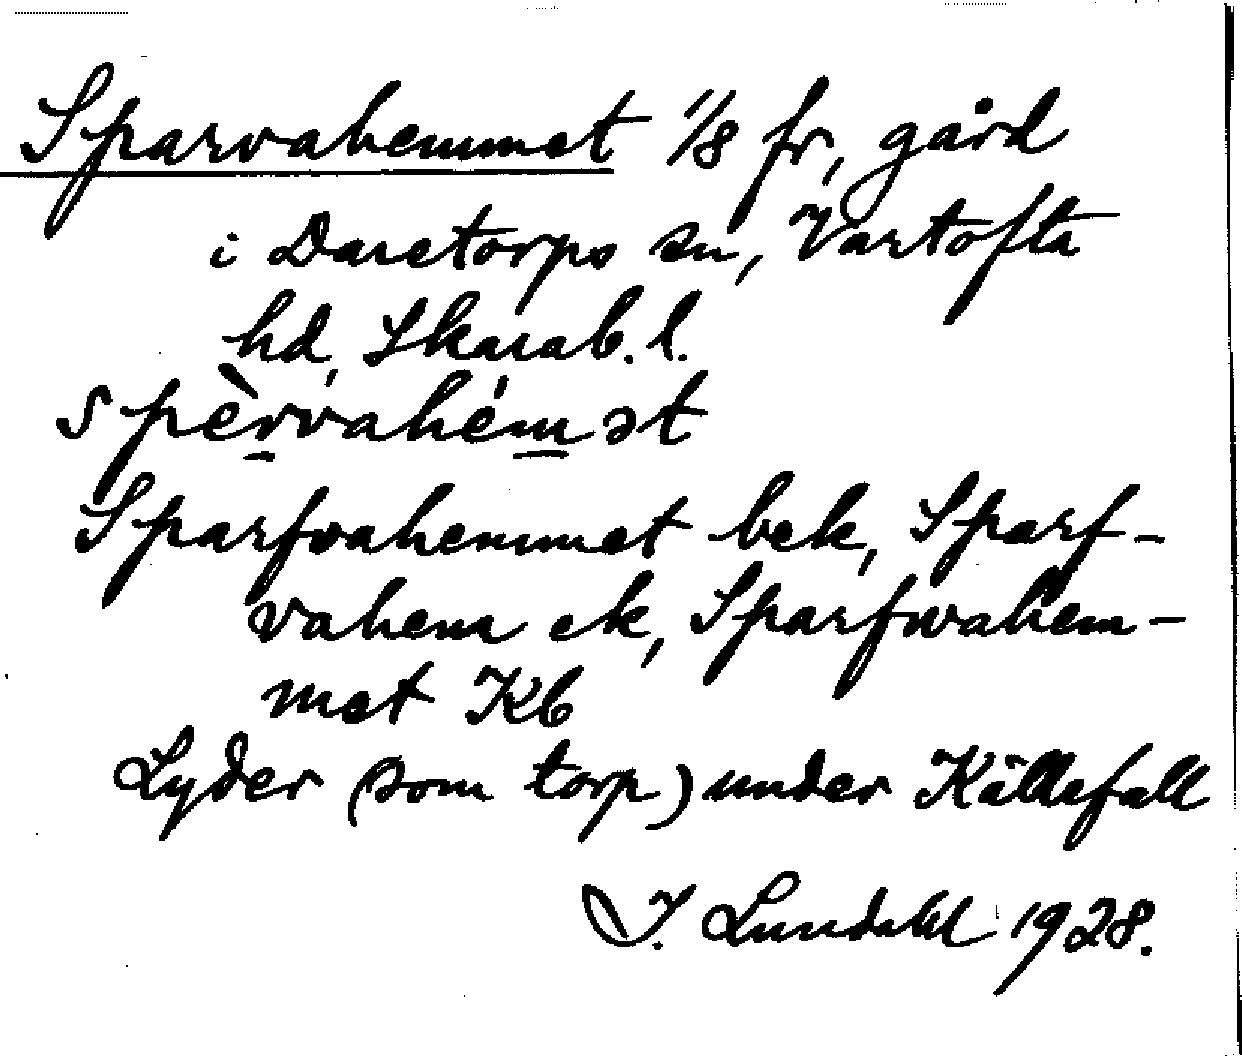 Sparvahemmet 1/8 fr, gård
i Daretorps sn, Vartofta
hd, Skarab. l.
spèrvahém ət
Sparfvahemmet bek, Sparf-
vahem ek, Sparfwahem-
met Kb
Lyder (som torp) under Källefall
I. Lundahl 1928.